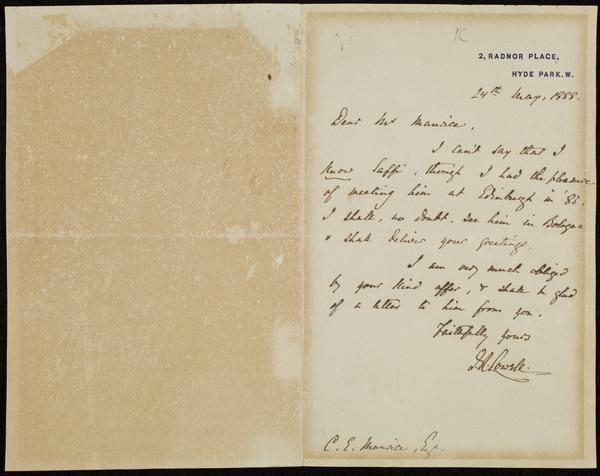 2, RADNOR PLACE,
HYDE PARK. W.
24th May, 1888.
Dear Mr Maurice,
I can't say that I
know Saffi, though I had the pleasure
of meeting him at Edinburgh in
I shall, no doubt, see him in Bologna
& shall deliver your greetings.
I am very much obliged
by your kind offer, & shall be glad
of a letter to him from you.
Faithfully yours
J. R. Lowell.
C. E. Maurice, Esq.